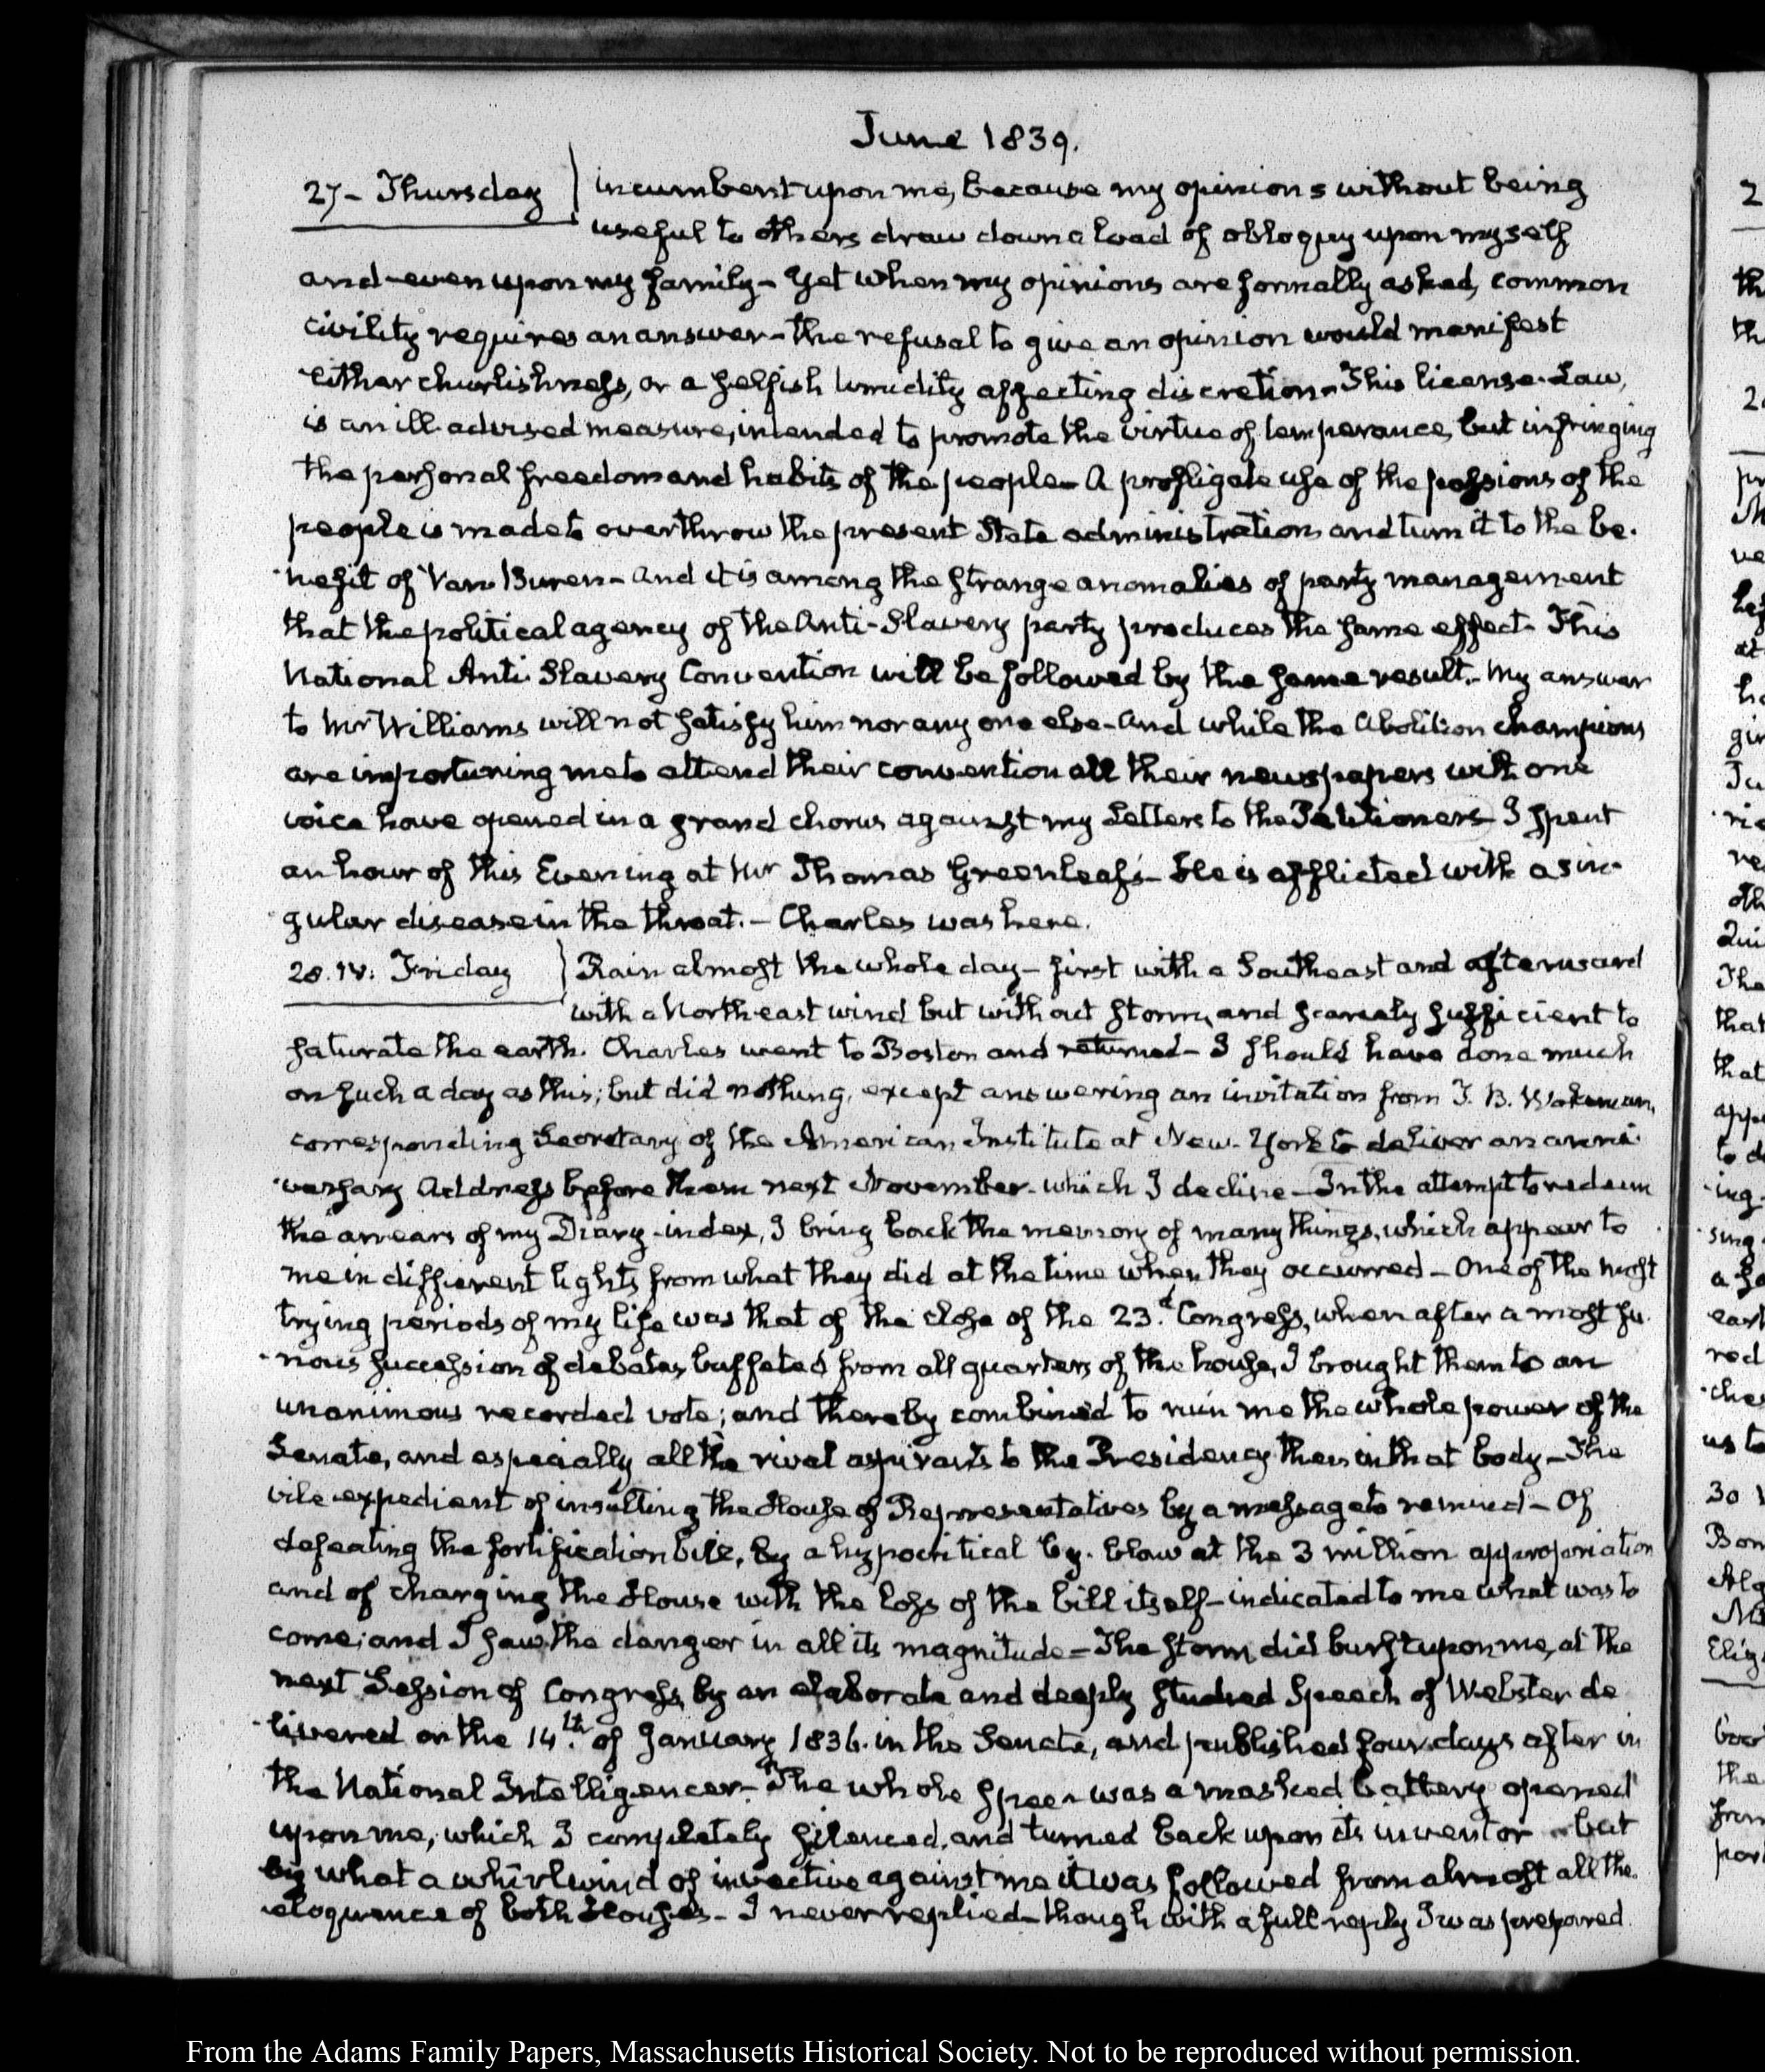 June 1839.
27 - Thursday incumbent upon me, because my opinions without being
useful to others draw down a load of obloquy upon myself
and even upon my family - Yet when my opinions are formally asked, common
civility requires an answer - the refusal to give an opinion would manifest
either churlishness, or a selfish timidity affecting discretion - This license-Law,
is an ill-advised measure, intended to promote the virtue of temperance, but infringing
the personal freedom and habits of the people - A profligate use of the passions of the
people is made to overthrow the present State administration and turn it to the be-
nefit of Van Buren - and it is among the strange anomalies of party management
that the political agency of the Anti-Slavery party produces the same effect - This
National Anti-Slavery Convention will be followed by the same result. - My answer
to Mr Williams will not satisfy him nor any one else - And while the Abolition champions
are importuning me to attend their convention all their newspapers with one
voice have opened in a grand chorus against my Letters to the Petitioners - I spent
an hour of this Evening at Mr Thomas Greenleaf's - He is afflicted with a sin-
gular disease in the throat. - Charles was here.
28. IV: Friday Rain almost the whole day - first with a Southeast and afterward
with a Northeast wind but without storm, and scarcely sufficient to
saturate the earth. Charles went to Boston and returned - I should have done much
on such a day as this; but did nothing, except answering an invitation from T. B. Wakeman,
corresponding Secretary of the American Institute at New-York to deliver an anni-
versary Address before them next November - which I decline - In the attempt to redeem
the arrears of my Diary-index, I bring back the memory of many things, which appear to
me in different lights from what they did at the time when they occurred - One of the most
trying periods of my life was that of the close of the 23.d Congress, when after a most fu-
rious succession of debates, buffeted from all quarters of the house, I brought them to an
unanimous recorded vote; and thereby combined to ruin me the whole power of the
Senate, and especially all the rival aspirants to the Presidency then in that body - The
vile expedient of insulting the House of Representatives by a message to remind - Of
defeating the fortification bill, by a hypocritical by-blow at the 3 million appropriation
and of charging the House with the loss of the bill itself - indicated to me what was to
come; and I saw the danger in all its magnitude - The storm did burst upon me, at the
next Session of Congress, by an elaborate and deeply studied Speech of Webster de-
livered on the 14.th of January 1836. in the Senate, and published four days after in
the National Intelligencer. - The whole was a masked battery opened
upon me, which I completely silenced, and turned back upon its inventor - but
by what a whirlwind of invective against me it was followed from almost all the
eloquence of both Houses - I never replied - though with a full reply I was prepared.
From the Adams Family Papers, Massachusetts Historical Society. Not to be reproduced without permission.